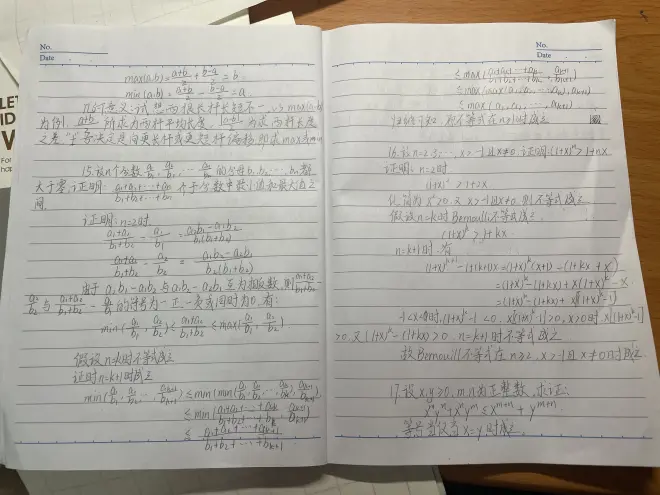 No.
Date
max(a,b)=\frac{a+b}{2}+\frac{b-a}{2}=b.
min(a,b)=\frac{a+b}{2}-\frac{b-a}{2}=a.
几何意义:试想两根长杆长短不一,以max(a,b)
为例,\frac{a+b}{2}所求为两杆平均长度,\frac{|a-b|}{2}为求两杆长度
之差
15.设n个分数\frac{a_1}{b_1},\frac{a_2}{b_2},…\frac{a_n}{b_n}的分母b_1,b_2,…,b_n都
大于零,证明:\frac{a_1+a_2+…+a_n}{b_1+b_2+…+b_n}介于分数中最小值和最大值之
间.
证明:n=2时.
\frac{a_1+a_2}{b_1+b_2}-\frac{a_1}{b_1}=\frac{a_2b_1-a_1b_2}{b_1(b_1+b_2)}
\frac{a_1+a_2}{b_1+b_2}-\frac{a_2}{b_2}=\frac{a_1b_2-a_2b_1}{b_2(b_1+b_2)}
由于a_2b_1-a_1b_2与a_1b_2-a_2b_1互为相反数,则\frac{a_1+a_2}{b_1+b_2}-
\frac{a_2}{b_2}与\frac{a_1+a_2}{b_1+b_2}-\frac{a_1}{b_1}的符号为一正一负或同时为0,有:
min(\frac{a_1}{b_1},\frac{a_2}{b_2})≤\frac{a_1+a_2}{b_1+b_2}≤max(\frac{a_1}{b_1},\frac{a_2}{b_2})
假设n=k时不等式成立
证明n=k+1时成立
min(\frac{a_1}{b_1},\frac{a_2}{b_2},…,\frac{a_{k+1}}{b_{k+1}})≤min(min(\frac{a_1}{b_1},\frac{a_2}{b_2},…,\frac{a_k}{b_k}),\frac{a_{k+1}}{b_{k+1}})
≤min(\frac{a_1+a_2+…+a_k}{b_1+b_2+…+b_k},\frac{a_{k+1}}{b_{k+1}})
≤\frac{a_1+a_2+…+a_{k+1}}{b_1+b_2+…+b_{k+1}}
No.
Date
≤max(\frac{a_1+a_2+…+a_k}{b_1+b_2+…+b_k},\frac{a_{k+1}}{b_{k+1}})
≤max(max(a_1,a_2,…,a_k),a_{k+1})
≤max(a_1,a_2,…,a_{k+1})
归纳可知,原不等式在n≥1时成立
16.设n=2,3,…,x>-1且x≠0.证明:(1+x)^n>1+nx
证明:n=2时
(1+x)^2>1+2x
化简为x^2>0.又x>-1且x≠0,则不等式成立
假设n=k时Bernoulli不等式成立.
(1+x)^k>1+kx
n=k+1时,有
(1+x)^{k+1}-1-(k+1)x=(1+x)^k(x+1)-(1+kx+x)
=(1+x)^k-(1+kx)+x(1+x)^k-x
=(1+x)^k-(1+kx)+x[(1+x)^k-1]
-1<x<0时,(1+x)^k-1<0,x[(1+x)^k-1]>0,x>0时,x[(1+x)^k-1]
>0.又(1+x)^k-(1+kx)>0,n=k+1时不等式成立
故Bernoulli不等式在n≥2,x>-1且x≠0时成立
17.设x,y≥0,m,n为正整数,求证:
x^my^n+x^ny^m≤x^{m+n}+y^{m+n}.
等号当仅当x=y时成立.